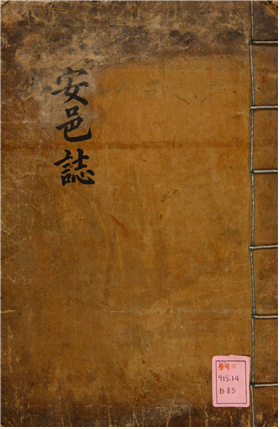 安邑誌
915.14
B85